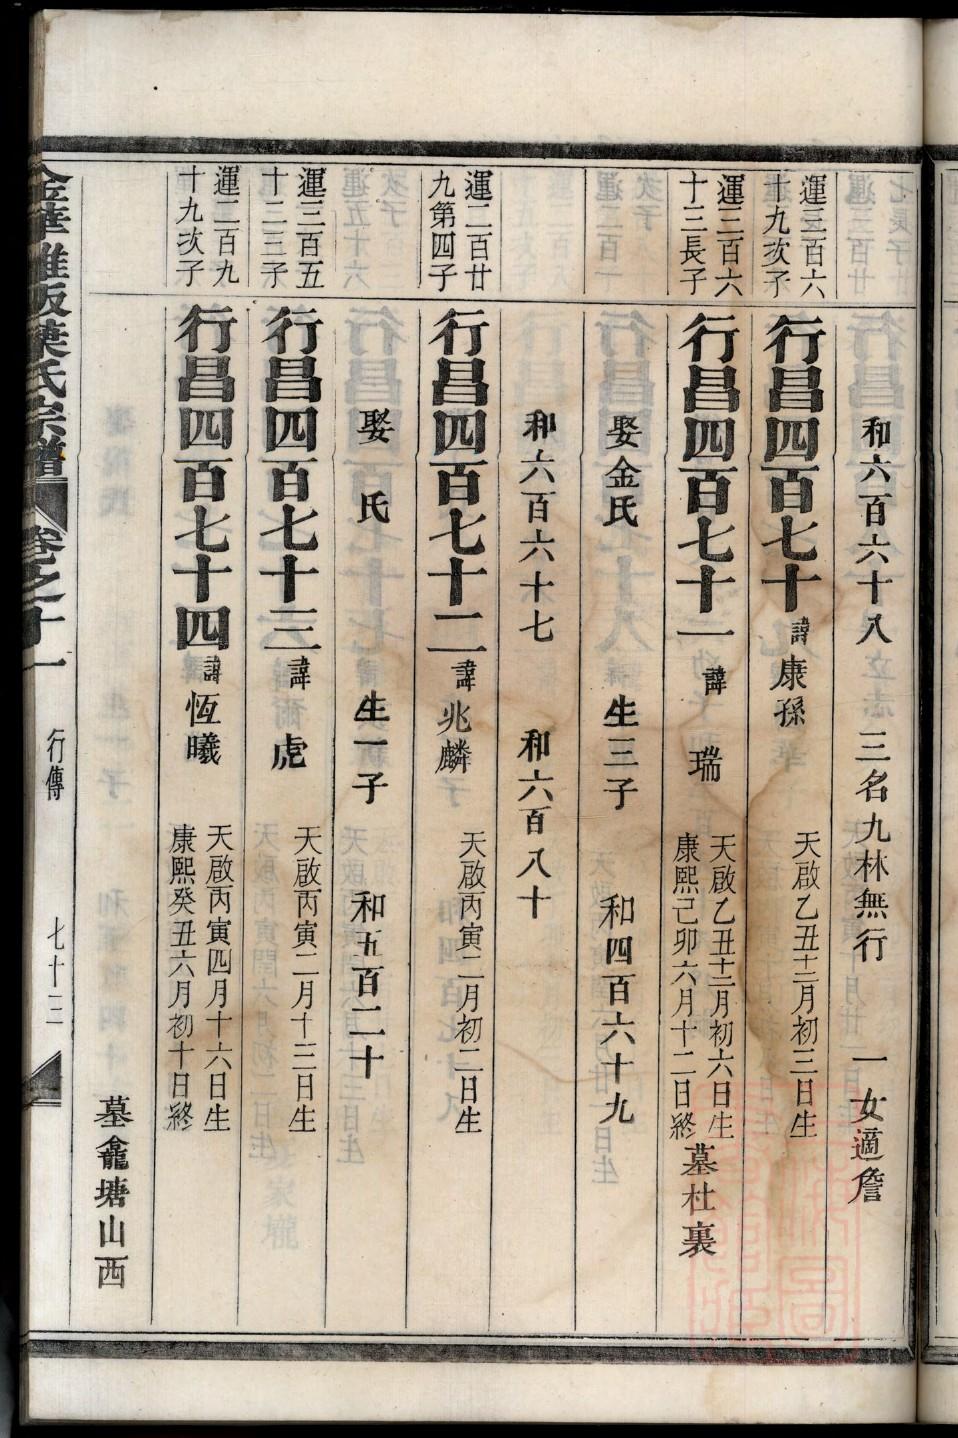 和六百六十八 三名九林無行 一女適詹
運三百六十九次子
行昌四百七十 諱康孫 天啟乙丑十二月初三日生
運三百六十三長子
行昌四百七十一 諱瑞 天啟乙丑十二月初六日生
康熙己卯六月十二日終 墓杜裏
娶金氏 生三子 和四百六十九
和六百六十七 和六百八十
運二百廿九第四子
行昌四百七十二 諱兆麟 天啟丙寅二月初二日生
娶 氏 生一子 和五百二十
運三百五十三三子
行昌四百七十三 諱虎 天啟丙寅二月十三日生
運二百九十九次子
行昌四百七十四 諱恆曦 天啟丙寅四月十六日生
康熙癸丑六月初十日終
墓龕塘山西
葉氏宗譜 卷之十一 行傳 七十三